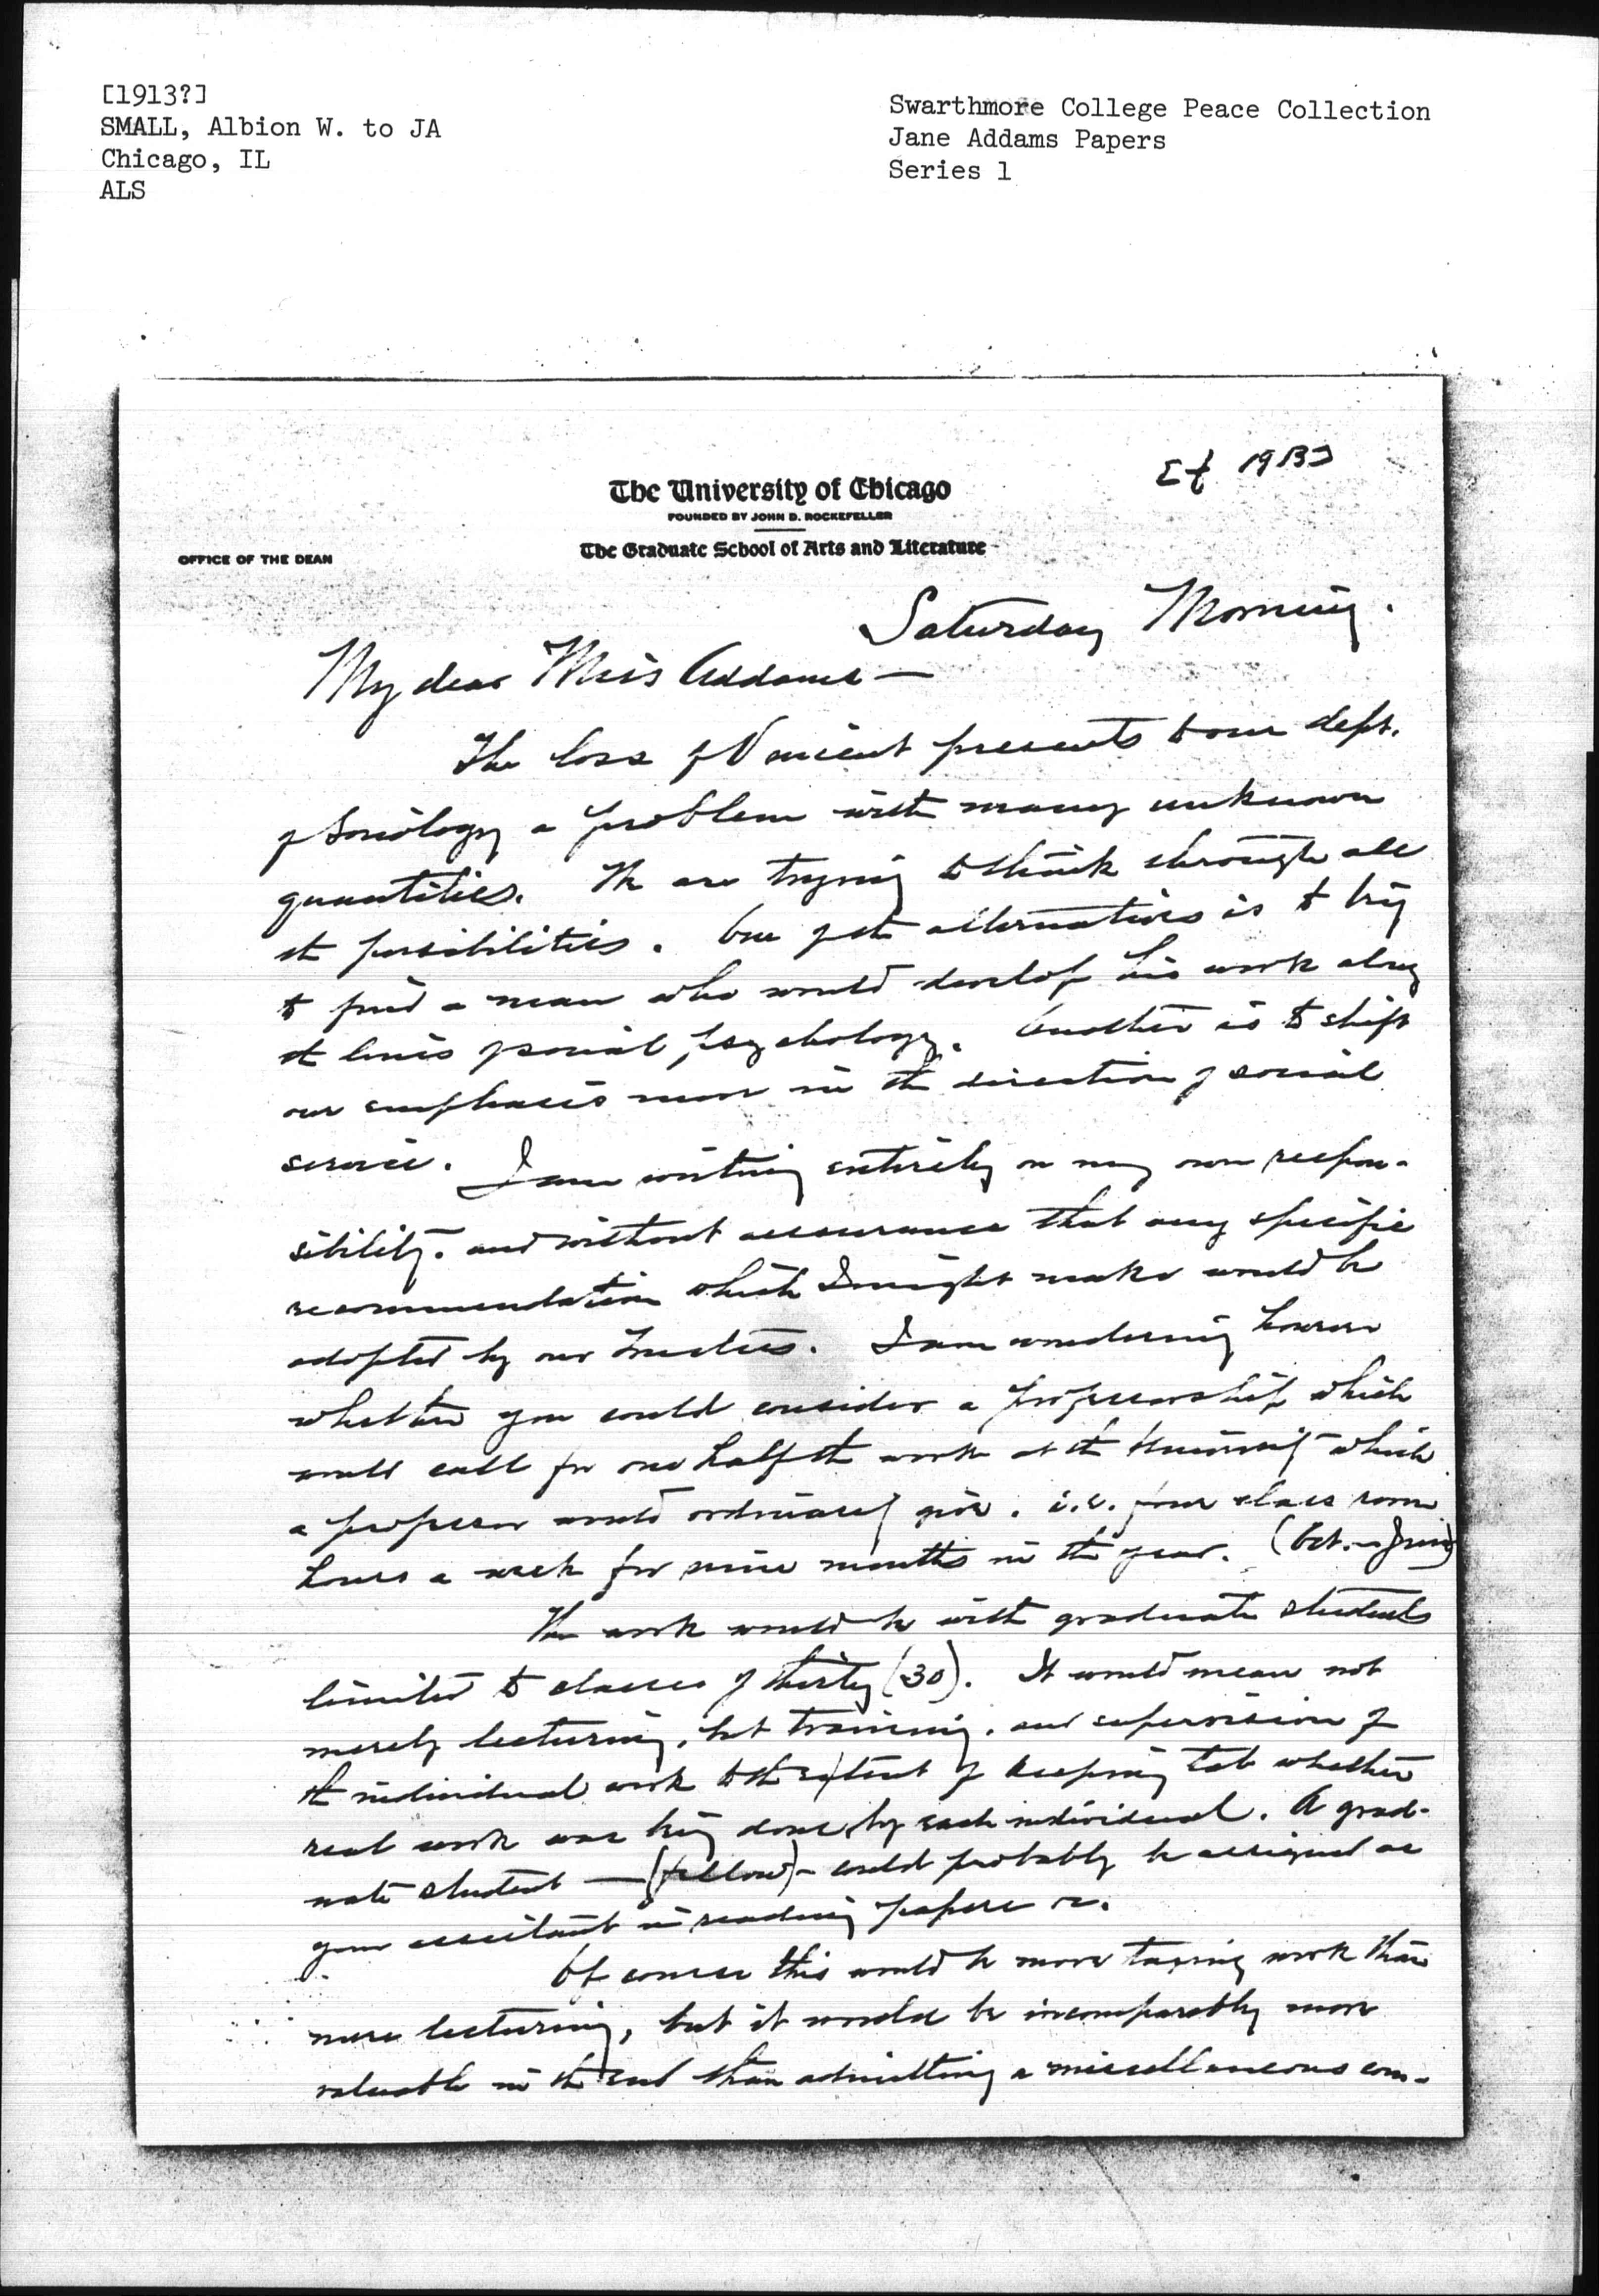 [1913?]
SMALL, Albion W. to JA
Chicago, IL
ALS
Swarthmore College Peace Collection
Jane Addams Papers
Series 1
1913]
The University of Chicago
FOUNDED BY JOHN D. ROCKEFELLER
The Graduate School of Arts and Literature
OFFICE OF THE DEAN
Saturday Morning.
My dear Miss Addams—
The loss of Vincent presents to our dept.
of Sociology a problem with many unknown
quantities. We are trying to think through all
the possibilities. One of the alternatives is to try
to find a man who would develop his work along
the lines of social psychology. Another is to shift
our emphasis more in the direction of social
service. I am writing entirely on my own respon-
sibility. and without assurance that any specific
recommendation which I might make would be
adopted by our Trustees. I am wondering however
whether you could consider a professorship which
would call for one half the work at the University which
a professor would ordinarily give. i.e. four class room
hours a week for nine months in the year. (Oct. - June)
The work would be with graduate students
limited to classes of thirty (30). It would mean not
merely lecturing, but training, and supervision of
the individual work to the extent of keeping tab whether
real work was being done by each individual. A grad-
uate student — (fellow) - could probably be assigned as
your assistant in reading papers &c.
Of course this would be more taxing work than
mere lecturing, but it would be incomparably more
valuable in the end than admitting a miscellaneous com-